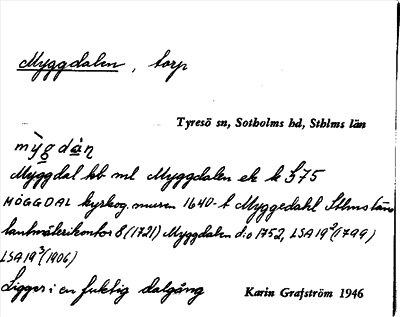 Myggdalen, torp
Tyresö sn, Sotholms hd, Sthlms län
mỳg dàṇ
Myggdal kb ml Myggdalen ek k 575
MÖGGDAL kyrkog. muren 1640-t Myggedahl Sthms läns
lantmäterikontor 8 (1721) Myggdalen d:o 1752, LSA 19² (1799)
LSA 19³ (1906)
Ligger i en fuktig dalgång
Karin Grafström 1946